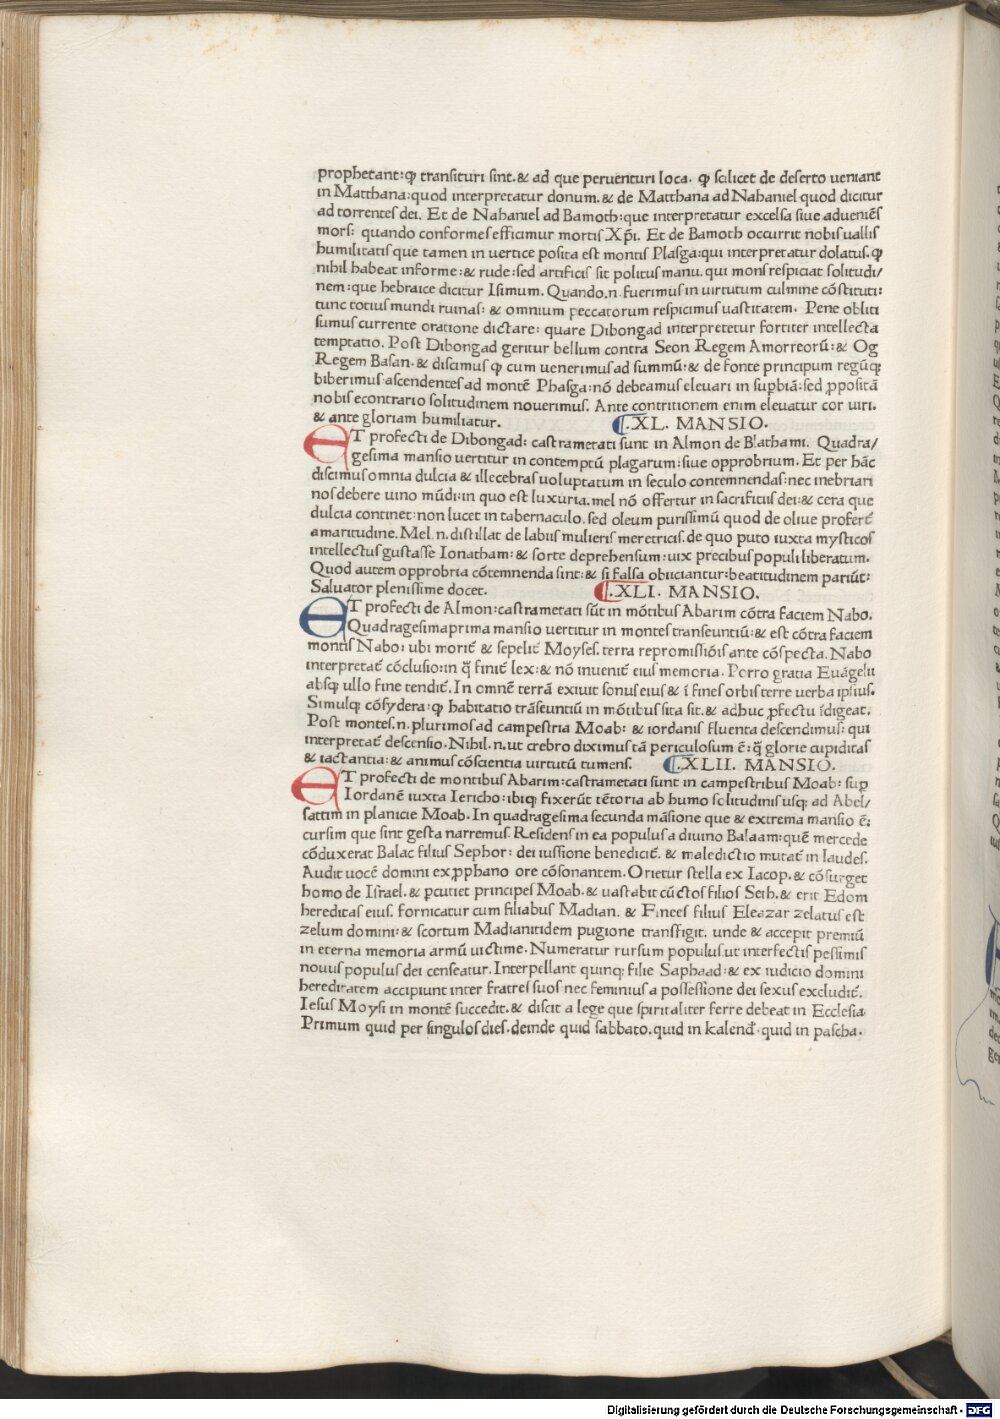 prophetant: ꝙ transituri sint. & ad que peruenturi loca. ꝙ scilicet de deserto ueniant
in Matthana: quod interpretatur donum. & de Matthana ad Nahaniel quod dicitur
ad torrentes dei. Et de Nahaniel ad Bamoth: que interpretatur excelsa siue adueniẽs
mors: quando conformes efficimur mortis Xp̃i. Et de Bamoth occurrit nobis uallis
humilitatis que tamen in uertice posita est montis Plasga: qui interpretatur dolatus. ꝙ
nihil habeat informe: & rude: sed artificis sit politus manu. qui mons respiciat solitudi/
nem: que hebraice dicitur Isimum. Quando .n. fuerimus in uirtutum culmine cõstituti:
tunc totius mundi ruinas: & omnium peccatorum respicimus uastitatem. Pene obliti
sumus currente oratione dictare: quare Dibongad interpretetur fortiter intellecta
temptatio. Post Dibongad geritur bellum contra Seon Regem Amorreorũ: & Og
Regem Basan. & discimus ꝙ cum uenerimus ad summũ: & de fonte principum regũq;
biberimus ascendentes ad montẽ Phasga: nõ debeamus eleuari in suꝑbiã: sed ꝓpositã
nobis econtrario solitudinem nouerimus. Ante contritionem enim eleuatur cor uiri.
& ante gloriam humiliatur. .XL. MANSIO.
ET profecti de Dibongad: castrametati sunt in Almon de Blathami. Quadra/
gesima mansio uertitur in contemptũ plagarum: siue opprobrium. Et per hãc
discimus omnia dulcia & illecebras uoluptatum in seculo contemnendas: nec inebriari
nos debere uino mũdi: in quo est luxuria. mel nõ offertur in sacrificiis dei: & cera que
dulcia continet: non lucet in tabernaculo. sed oleum purissimũ quod de oliue profert̃
amaritudine. Mel .n. distillat de labiis mulieris meretricis. de quo puto iuxta mysticos
intellectus gustasse Ionatham: & sorte deprehensum: uix precibus populi liberatum.
Quod autem opprobria cõtemnenda sint: & si falsa obiiciantur: beatitudinem pariũt:
Saluator plenissime docet. .XLI. MANSIO.
ET profecti de Almon: castrametati sũt in mõtibus Abarim cõtra faciem Nabo.
Quadragesimaprima mansio uertitur in montes transeuntiũ: & est cõtra faciem
montis Nabo: ubi morit̃ & sepelit̃ Moyses. terra repromissiõis ante cõspecta. Nabo
interpretat̃ cõclusio: in q̃ finit̃ lex: & nõ inuenit̃ eius memoria. Porro gratia Euãgelii
absq; ullo fine tendit̃. In omnẽ terrã exiuit sonus eius & ĩ fines orbis terre uerba ipsius.
Simulq; cõsydera: ꝙ habitatio trãseuntiũ in mõtibus sita sit. & adhuc ꝓfectu ĩdigeat.
Post montes .n. plurimos ad campestria Moab: & iordanis fluenta descendimus: qui
interpretat̃ descensio. Nihil .n. ut crebro diximus tã periculosum ẽ: q̃ glorie cupiditas
& iactantia: & animus cõscientia uirtutũ tumens. .XLII. MANSIO.
ET profecti de montibus Abarim: castrametati sunt in campestribus Moab: suꝑ
Iordanẽ iuxta Iericho: ibiq; fixerũt tẽtoria ab humo solitudinis usq; ad Abel/
sattim in planicie Moab. In quadragesima secunda mãsione que & extrema mansio ẽ:
cursim que sint gesta narremus. Residens in ea populus a diuino Balaam: quẽ mercede
cõduxerat Balac filius Sephor: dei iussione benedicit̃. & maledictio mutat̃ in laudes.
Audit uocẽ domini ex ꝓphano ore cõsonantem. Orietur stella ex Iacop. & cõsurget
homo de Israel. & ꝑcutiet principes Moab. & uastabit cũctos filios Seth. & erit Edom
hereditas eius. fornicatur cum filiabus Madian. & Finees filius Eleazar zelatus est
zelum domini: & scortum Madianitidem pugione transfigit. unde & accepit premiũ
in eterna memoria armũ uictime. Numeratur rursum populus. ut interfectis pessimis
nouus populus dei censeatur. Interpellant quinq; filie Saphaad: & ex iudicio domini
hereditatem accipiunt inter fratres suos nec feminius a possessione dei sexus excludit̃.
Iesus Moysi in montẽ succedit. & discit a lege que spiritaliter ferre debeat in Ecclesia.
Primum quid per singulos dies. deinde quid sabbato. quid in kalend̃. quid in pascha.
Digitalisierung gefördert durch die Deutsche Forschungsgemeinschaft - DFG